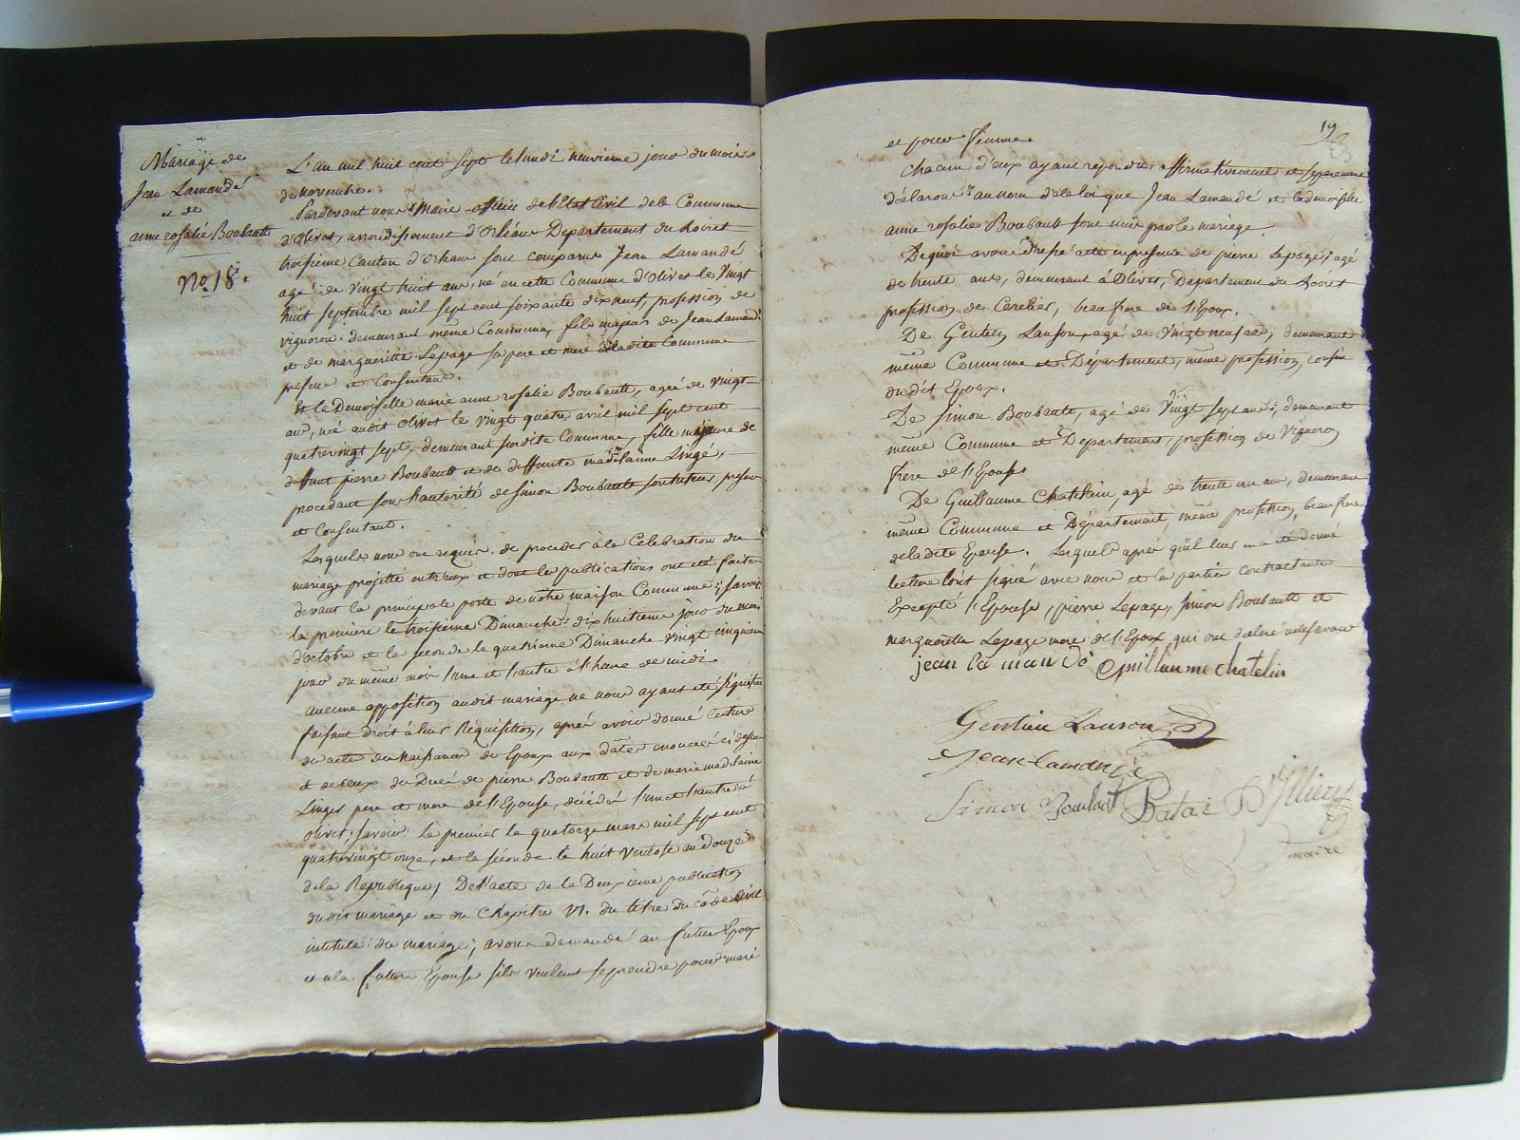 Mariage de
Jean Lamandé
et de
anne rosalie Boubault
No. 18.
L'an mil huit cent sept le lundi neuvieme jour du mois
de novembre.
Pardevant nous Maire officier de l'Etat Civil de la Commune
d'olivet, arrondissement d'Orléans Departement du Loiret
troisieme Canton d'orleans sont comparus Jean Lamandé
agé de vingt huit ans, né en cette Commune d'olivet le vingt
huit septembre mil sept cent soixante dix neuf, profession de
vigneron demeurant même Commune, fils majeur de Jean Lamandé
et de margueritte Lepage ses pere et mere de ladite Commune
present et Consentant.
Et la Demoiselle marie anne rosalie Boubault, agée de vingt
ans, née audit olivet le vingt quatre avril mil sept cent
quatrevingt sept, demeurant susdite Commune, fille majeure de
deffunt pierre Boubault et de deffunte madelaine Lingé,
procedant sous l'hautorité de Simon Boubault son tuteur, present
et Consentant.
Lesquels nous ont requis de proceder à la Celebration du
mariage projetté entr'eux et dont les publications ont été faites
devant la principale porte de notre maison Commune; savoir
la premiere le troisieme Dimanche dix huitieme jour du mois
d'octobre et la seconde le quatrieme Dimanche vingt cinquieme
jour du même mois l'une et l'autre à l'heure de midi.
aucune opposition audit mariage ne nous ayant été signifiée
faisant droit à leur Réquisition, après avoir donné lecture
des actes de Naissance des Epoux aux dattes enoncées ci dessus
et de ceux du Décés de pierre Boubault et de marie madelaine
Linger pere et mere de l'Epouse, décédés l'un et l'autre à
olivet; savoir le premier le quatorze mars mil sept cent
quatrevingt onze, et la séconde le huit ventose an douze
de la Republique, De l'acte de la Deuxieme publication
dudit mariage et du Chapitre VI. du titre du code Civil
intitulé du mariage; avons demandé au futur Epoux
et a la future Epouse s'ils veulent se prendre pour mari
19
et pour femme.
Chacun d'eux ayant repondu affirmativement et separement
déclarons au nom de la loi que Jean Lamandé et la demoiselle
anne rosalie Boubault sont unis par le mariage.
De quoi avons dressé acte en presence de pierre Lepage, agé
de trente ans, demeurant à Olivet, Departement du Loiret
profession de Cerclier, beau frere de l'Epoux.
De Gentien Lauson, agé de vingt neuf ans, demeurant
même Commune et Département, même profession, cousin
dudit Epoux.
De Simon Boubault, agé de vingt sept ans, demeurant
même Commune et Departement, profession de Vigneron
frere de l'Epouse
De Guillaume Chatelain, agé de trente un an, demeurant
même Commune et Département, même profession, beau frere
de ladite Epouse. Lesquels après qu'il leur en a été donné
lecture l'ont signé avec nous et les parties contractantes
Excepté l'Epouse, pierre Lepage, Simon Boubault et
margueritte Lepage mere de l'Epoux, qui ont déclaré ne le savoir
jean la man dé Guillaume Chatelin
Gentien Lauson
Jean lamandé
Simon Boubault
maire